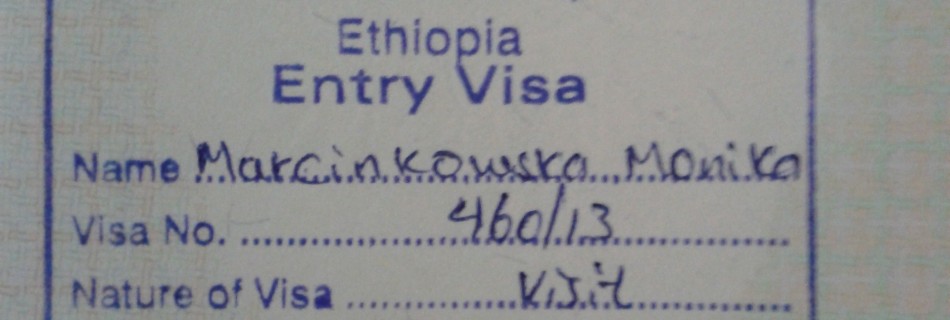 Ethiopia
Entry Visa
Name Marcinkowska Monika
Visa No. 460/13
Nature of Visa Visit